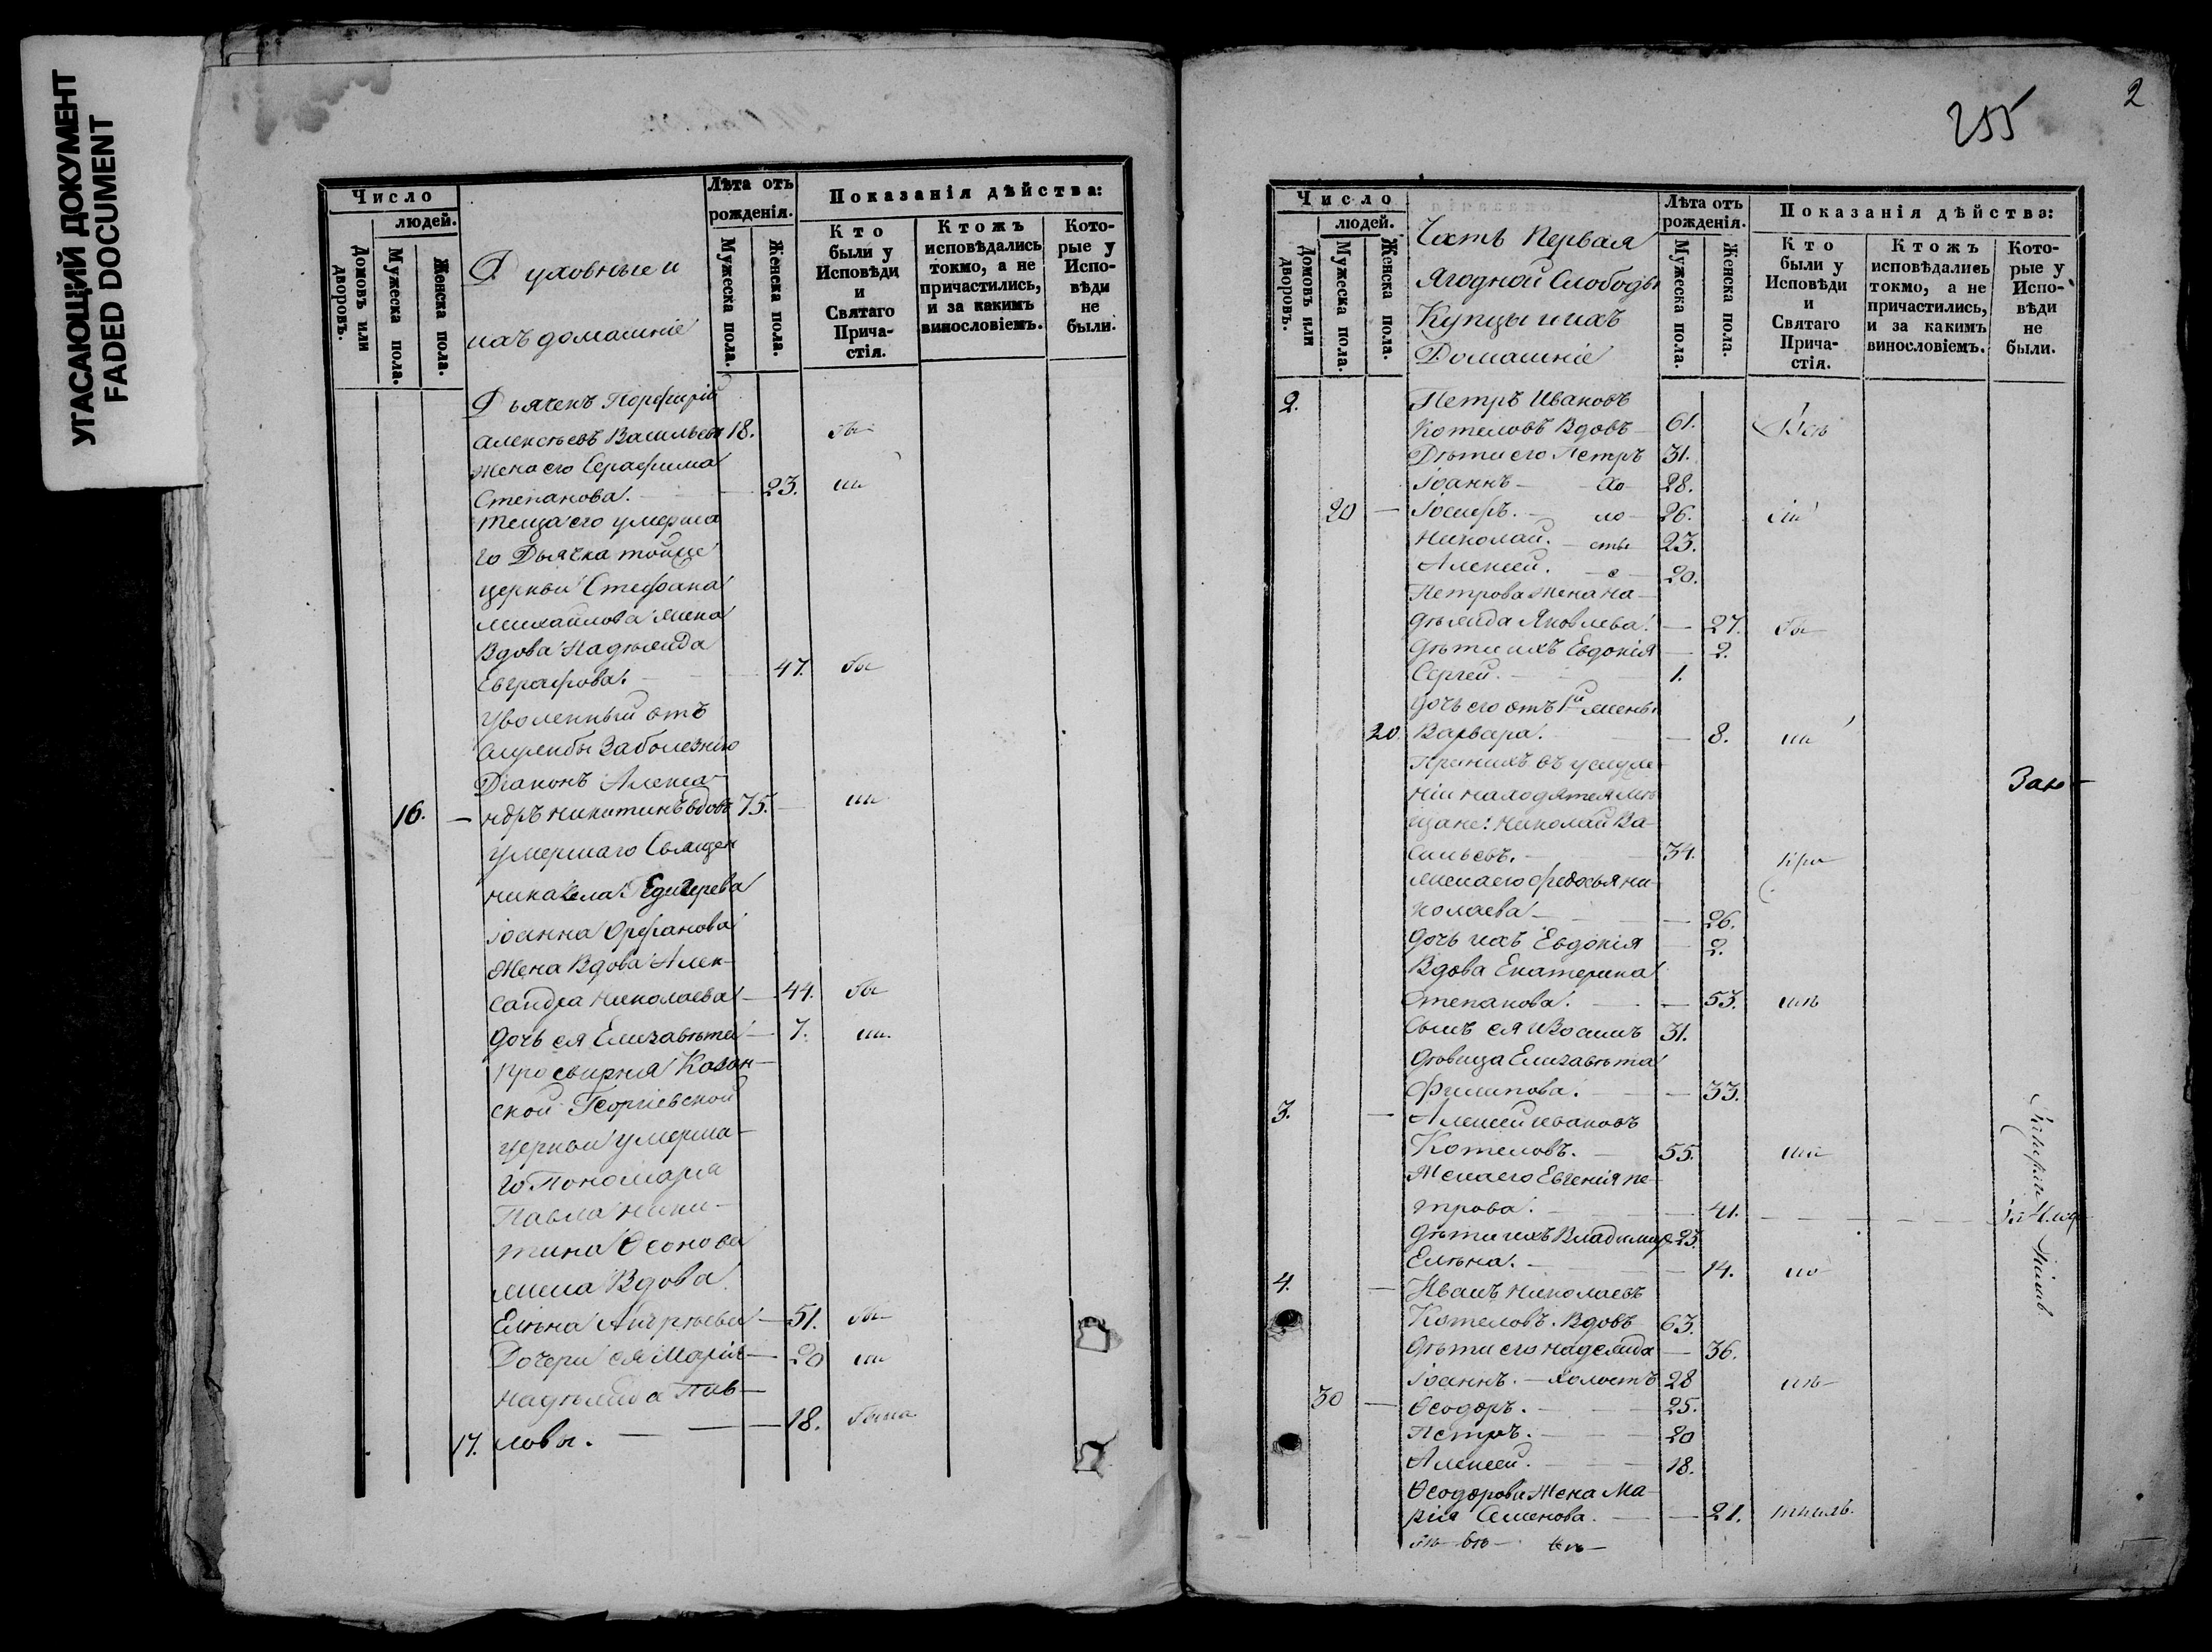 УГАСАЮЩИЙ ДОКУМЕНТ
FADED DOCUMENT
Число
людей.
Домовъ или дворовъ.
Мужеска пола.
Женска пола.
Духовные и
ихъ домашніе
Лѣта отъ рожденія.
Мужеска пола.
Женска пола.
Показанія дѣйства:
Кто были у Исповѣди и Святаго Прича-стія.
Ктожъ исповѣдались токмо, а не причастились, и за какимъ винословіемъ.
Кото-рые у Испо-вѣди не были.
Дьячекъ Порфирій
Алексѣевъ Васильевъ 18. бы
Жена его Серафима
Степанова. 23. ли
Теща его умерша
го Дьячка тойже
церкви Стефана
Михайлова жена
Вдова Надежда
Евграфова. 47. бы
Уволенный отъ
службы за болезнію
Діаконъ Алекса-
16. ндръ Никитинъ вдовъ 75. ли
Умершаго Священ
ника села
Іоанна Орфанова
Жена Вдова Алек-
сандра Николаева 44. бы
Дочь ея Елизавѣта 7. ли.
Просвирня Казан-
ской Георгіевской
церкви умерша-
го Пономаря
Павла Ники-
тина Ѳеонова
жена Вдова
Елѣна Андрѣева 51. бы
Дочери ея Марія 20 ли
Надежда Пав-
17. ловы. 18. была
255
2
Число
людей.
Домовъ или дворовъ.
Мужеска пола.
Женска пола.
Часть Первая
Ягодной Слободы
Купцы и ихъ
Домашніе
Лѣта отъ рожденія.
Мужеска пола.
Женска пола.
Показанія дѣйства:
Кто были у Исповѣди и Святаго Прича-стія.
Ктожъ исповѣдались токмо, а не причастились, и за какимъ винословіемъ.
Кото-рые у Испо-вѣди не были.
2. Петръ Ивановъ
Котеловъ Вдовъ 61. Всѣ
Дѣти его Петръ 31.
Іоаннъ хо 28.
20 Іосифъ. ло 26.
Николай. сты 23.
Алексѣй. е 20.
Петрова жена На-
дѣжда Яковлева. 27. бы
Дѣти ихъ Евдокія 2.
Сергей. 1.
Дочь его отъ 1й жены
20. Варвара. 8. ли
При нихъ въ услуже
ніи находятся Мѣ
щане: Николай Ва- Зак
сильевъ. 34. При
Жена его Федосья Ни-
колаева 26.
Дочь ихъ Евдокія 2.
Вдова Екатерина
Степанова. 53.
Сынъ ея Изосимъ 31.
Дѣвица Елизавѣта
Филипова. 33.
3. Алексѣй Ивановъ
Котеловъ. 55.
Жена его Евгенія Пе-
трова. 41.
Дѣти ихъ Владимиръ 23.
Елѣна. 14.
4. Иванъ Николаевъ
Котеловъ. Вдовъ 63.
Дѣти его Надежда 36.
Іоаннъ. Холостъ 28
30 Ѳеодоръ. 25.
Петръ. 20
Алексѣй. 18.
Ѳеодорова жена Ма-
рія Семенова. 21.